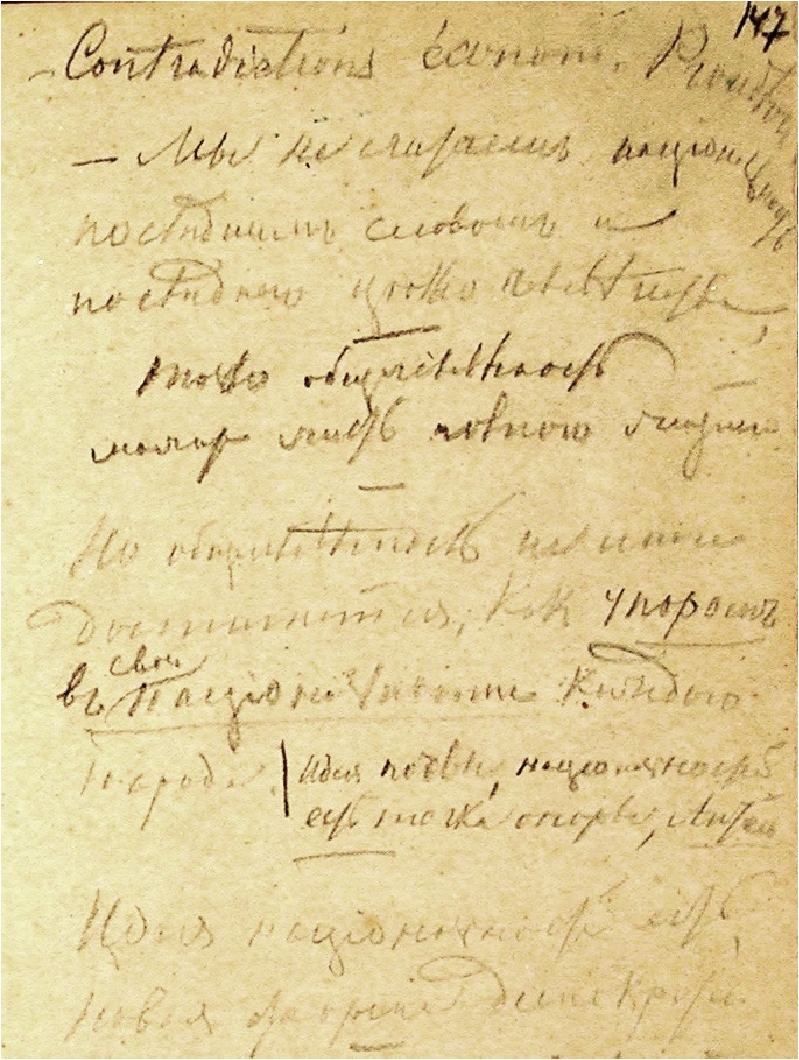 147
– Contradictions économ. Proudhon
– Мы не считаемъ национальность
последнимъ словомъ и
последнею целью человечества,
Только общечеловечность
можетъ жить полною жизнью
Но общечеловечность не иначе
достигнется, какъ упоромъ
въ свои национальности каждого
народа. Идея почвы, национальности
есть точка опоры; Антей
Идея национальностей есть
новая форма демократiи